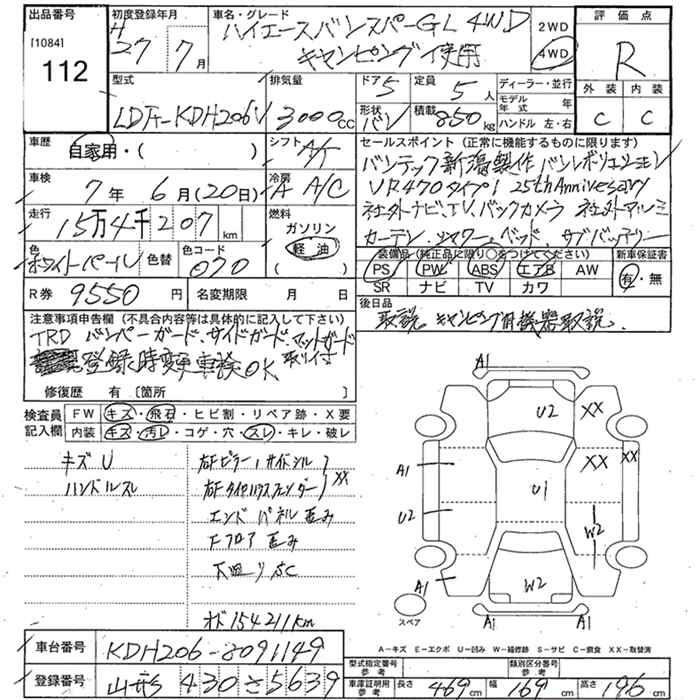 出品番号
[1084]
112
初度登録年月
H
27 7月
車名・グレード
ハイエースバンスパーGL 4WD
キャンピング使用
2WD
4WD
評価点
R
外装 内装
C C
型式
LDF-KDH206V
排気量
3000cc
ドア
5
定員
5人
形状
バン
積載
850kg
ディーラー・並行
モデル年式 年
ハンドル 左・右
車歴
自家用・(
シフト
A/T
車検
7年 6月(20日)
冷房
A A/C
走行
15万4千207km
燃料
ガソリン
軽油
色
ホワイトパール
色替
色コード
070
R券 9550円
名変期限 月 日
セールスポイント (正常に機能するものに限ります)
バンテック新潟製作 バンレボリューション
VR470タイプ1 25th Anniversary
社外ナビ、TV、バックカメラ 社外アルミ
カーテン、シャワー、ベッド、サブバッテリー
装備品(純正品に限り○をつけてください)
PS PW ABS エアB AW
SR ナビ TV カワ
新車保証書
有・無
後日品
取説、キャンピング用機器取説、
注意事項申告欄 (不具合内容等は具体的に記入して下さい)
TRD バンパーガード、サイドガード、マットガード
取り付
登録時変更車検OK、
修復歴 有 〔箇所
検査員記入欄
FW キズ・飛石・ヒビ割・リペア跡・X要
内装 キズ・汚レ・コゲ・穴・スレ・キレ・破レ
キズ U
ハンドルスレ
右Fピラー、サイドシル
右Fタイヤハウスフェンダー XX
エンドパネル歪み
Fフロア 歪み
下回りSC
オド154211km
A1
U2
XX
A1
XX
XX
U1
U2
W2
A1
W2
スペア
A1
A1
A-キズ E-エクボ U-凹み W-補修跡 S-サビ C-腐食 XX-取替済
車台番号
KDH206-8091149
登録番号
山形 430 さ5639
型式指定番号
参考
類別区分番号
参考
車庫証明用
参考
長さ 469cm
幅 169cm
高さ 196cm